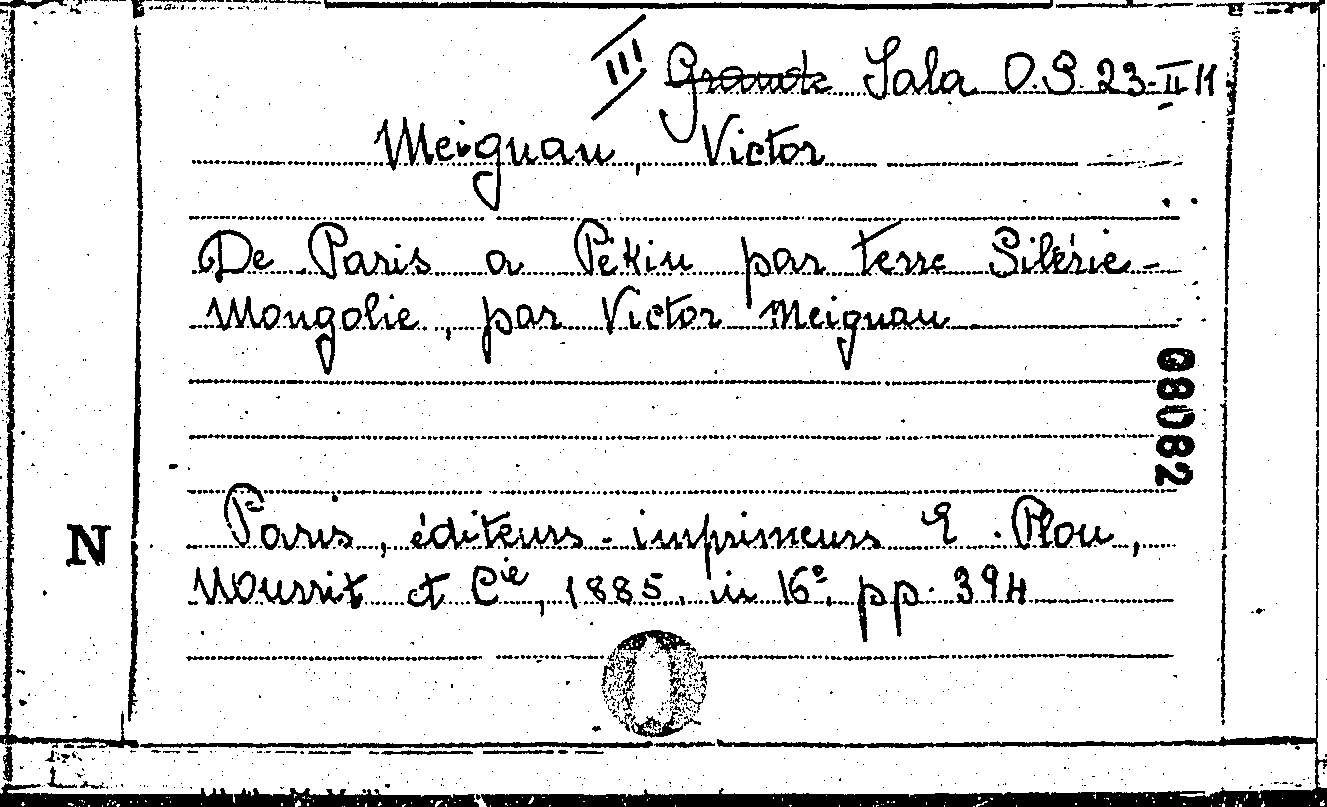 III Grande Sala O.S. 23-II 11
Meignan, Victor
De Paris a Pékin par terre Sibérie-
Mongolie, par Victor Meignan
08082
N
Paris, éditeurs-imprimeurs E. Plon,
Nourrit et Cie, 1885, in 16º, pp. 394